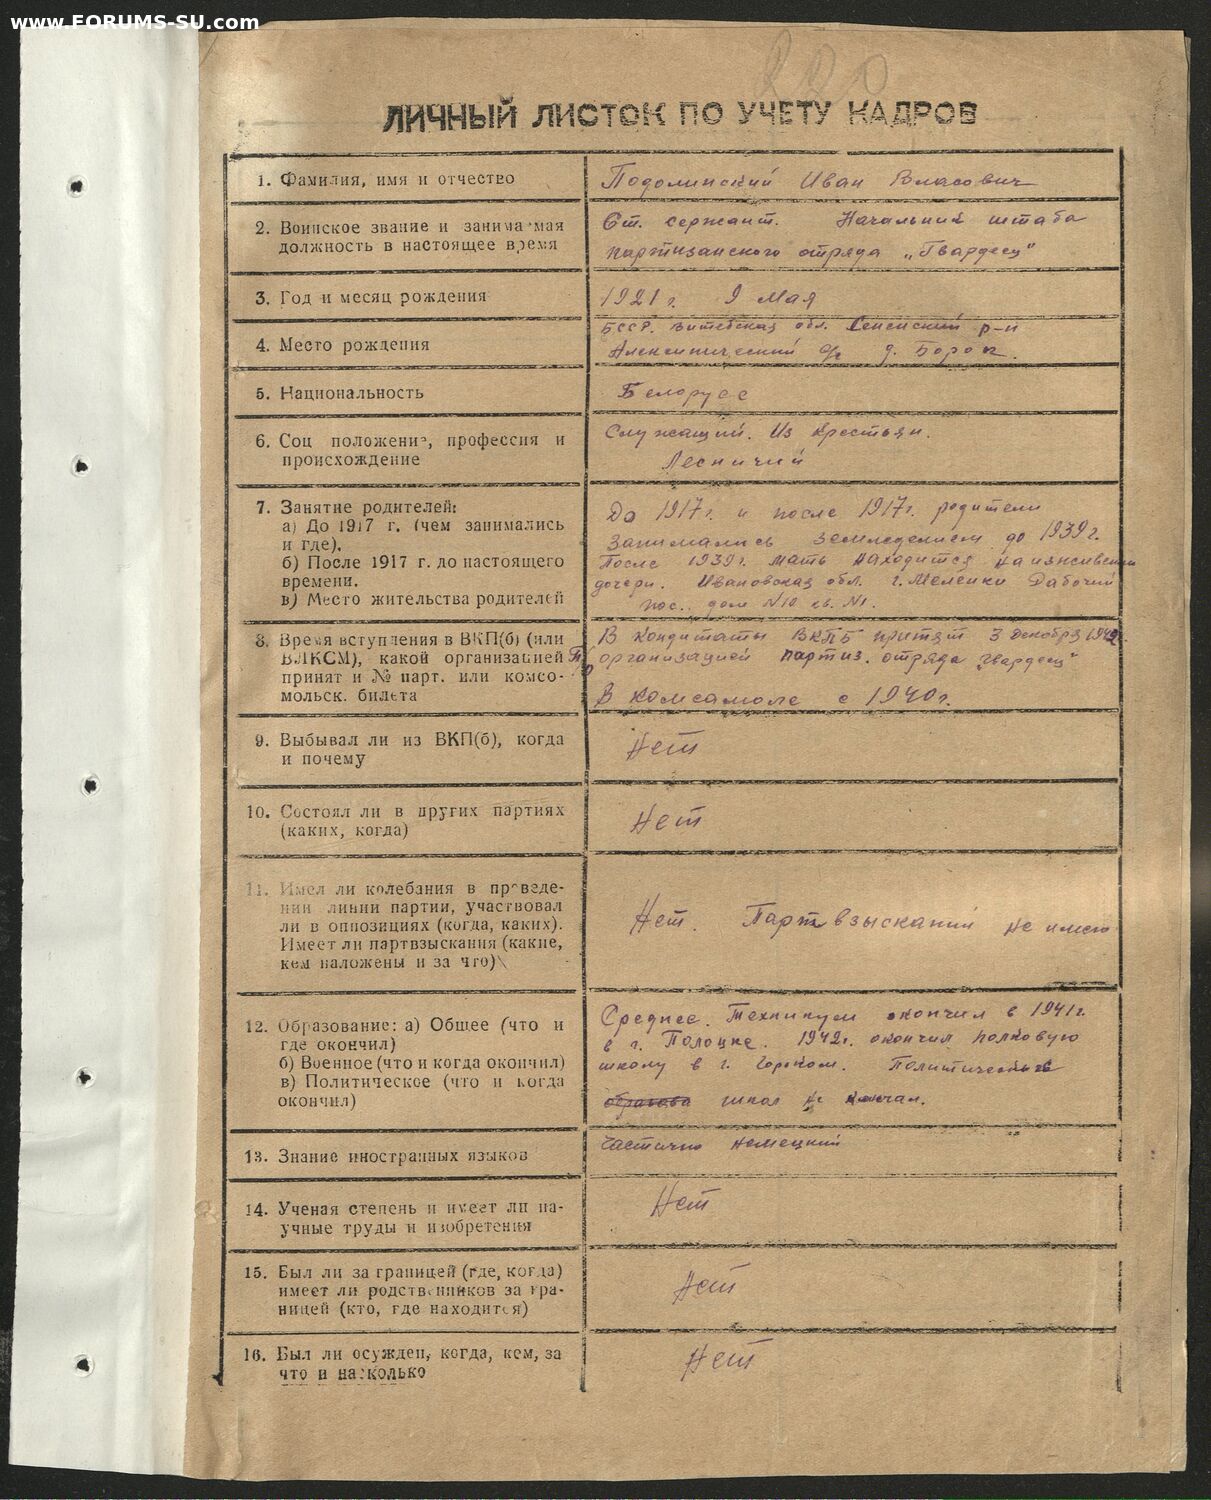 www.FORUMS-SU.com
220
ЛИЧНЫЙ ЛИСТОК ПО УЧЕТУ КАДРОВ
1. Фамилия, имя и отчество
Подолинский Иван Власович
2. Воинское звание и занимаемая
должность в настоящее время
Ст. сержант. Начальник штаба
партизанского отряда „Гвардеец"
3. Год и месяц рождения
1921 г. 9 Мая
4. Место рождения
БССР. Витебская обл. Сенненский р-н
Алексиничский с/с д. Борок.
5. Национальность
Белорусс
6. Соц положение, профессия и
происхождение
Служащий. Из крестьян.
Лесничий
7. Занятие родителей:
а) До 1917 г. (чем занимались
и где).
б) После 1917 г. до настоящего
времени.
в) Место жительства родителей
До 1917г. и после 1917г. родители
занимались земледелием до 1939г.
После 1939г. мать находится на иждивении
дочери. Ивановская обл. г. Меленки Рабочий
пос. дом №10 кв. №1.
8. Время вступления в ВКП(б) (или
ВЛКСМ), какой организацией
принят и № парт. или комсо-
мольск. билета
В кондитаты ВКПБ принят 3 декабря 1942
п/о организацией партиз. отряда „Гвардеец"
В комсамоле с 1940г.
9. Выбывал ли из ВКП(б), когда
и почему
Нет
10. Состоял ли в других партиях
(каких, когда)
Нет
11. Имел ли колебания в проведе-
нии линии партии, участвовал
ли в оппозициях (когда, каких).
Имеет ли партвзыскания (какие,
кем наложены и за что)
Нет. Партвзысканий не имею
12. Образование: а) Общее (что и
где окончил)
б) Военное (что и когда окончил)
в) Политическое (что и когда
окончил)
Среднее. Техникум окончил в 1941г.
в г. Полоцке. 1942г. окончил полковую
школу в г. Горьком. Политических
школ не кончал.
13. Знание иностранных языков
Частично немецкий
14. Ученая степень и имеет ли на-
учные труды и изобретения
Нет
15. Был ли за границей (где, когда)
имеет ли родственников за гра-
ницей (кто, где находится)
Нет
16. Был ли осужден, когда, кем, за
что и насколько
Нет